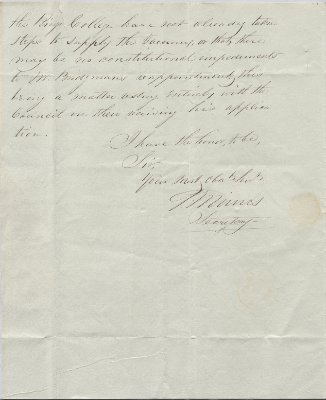 the Kings College have not already taken
steps to supply the vacancy, or that there
may be no constitutional impediments
to Mr. Bridgmans appointment, this
being a matter resting entirely with the
Council on their receiving his applica
tion.
I have the honor to be,
Sir
Your Most Obdt. Servt.
Secretary